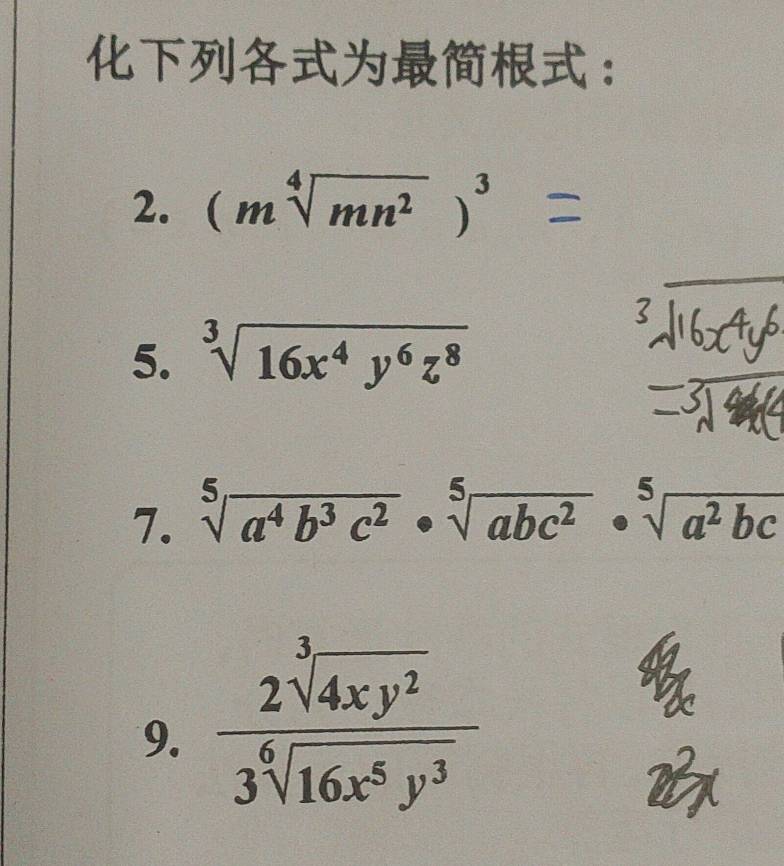 化下列各式为最简根式：
2. ( m ∜(mn²) )³ =
5. ∛(16x⁴ y⁶ z⁸)
∛(16x⁴y⁶
= ∛
7. ⁵√(a⁴ b³ c²) • ⁵√(abc²) • ⁵√(a² bc
9. 2∛(4xy²) / 3⁶√(16x⁵ y³)